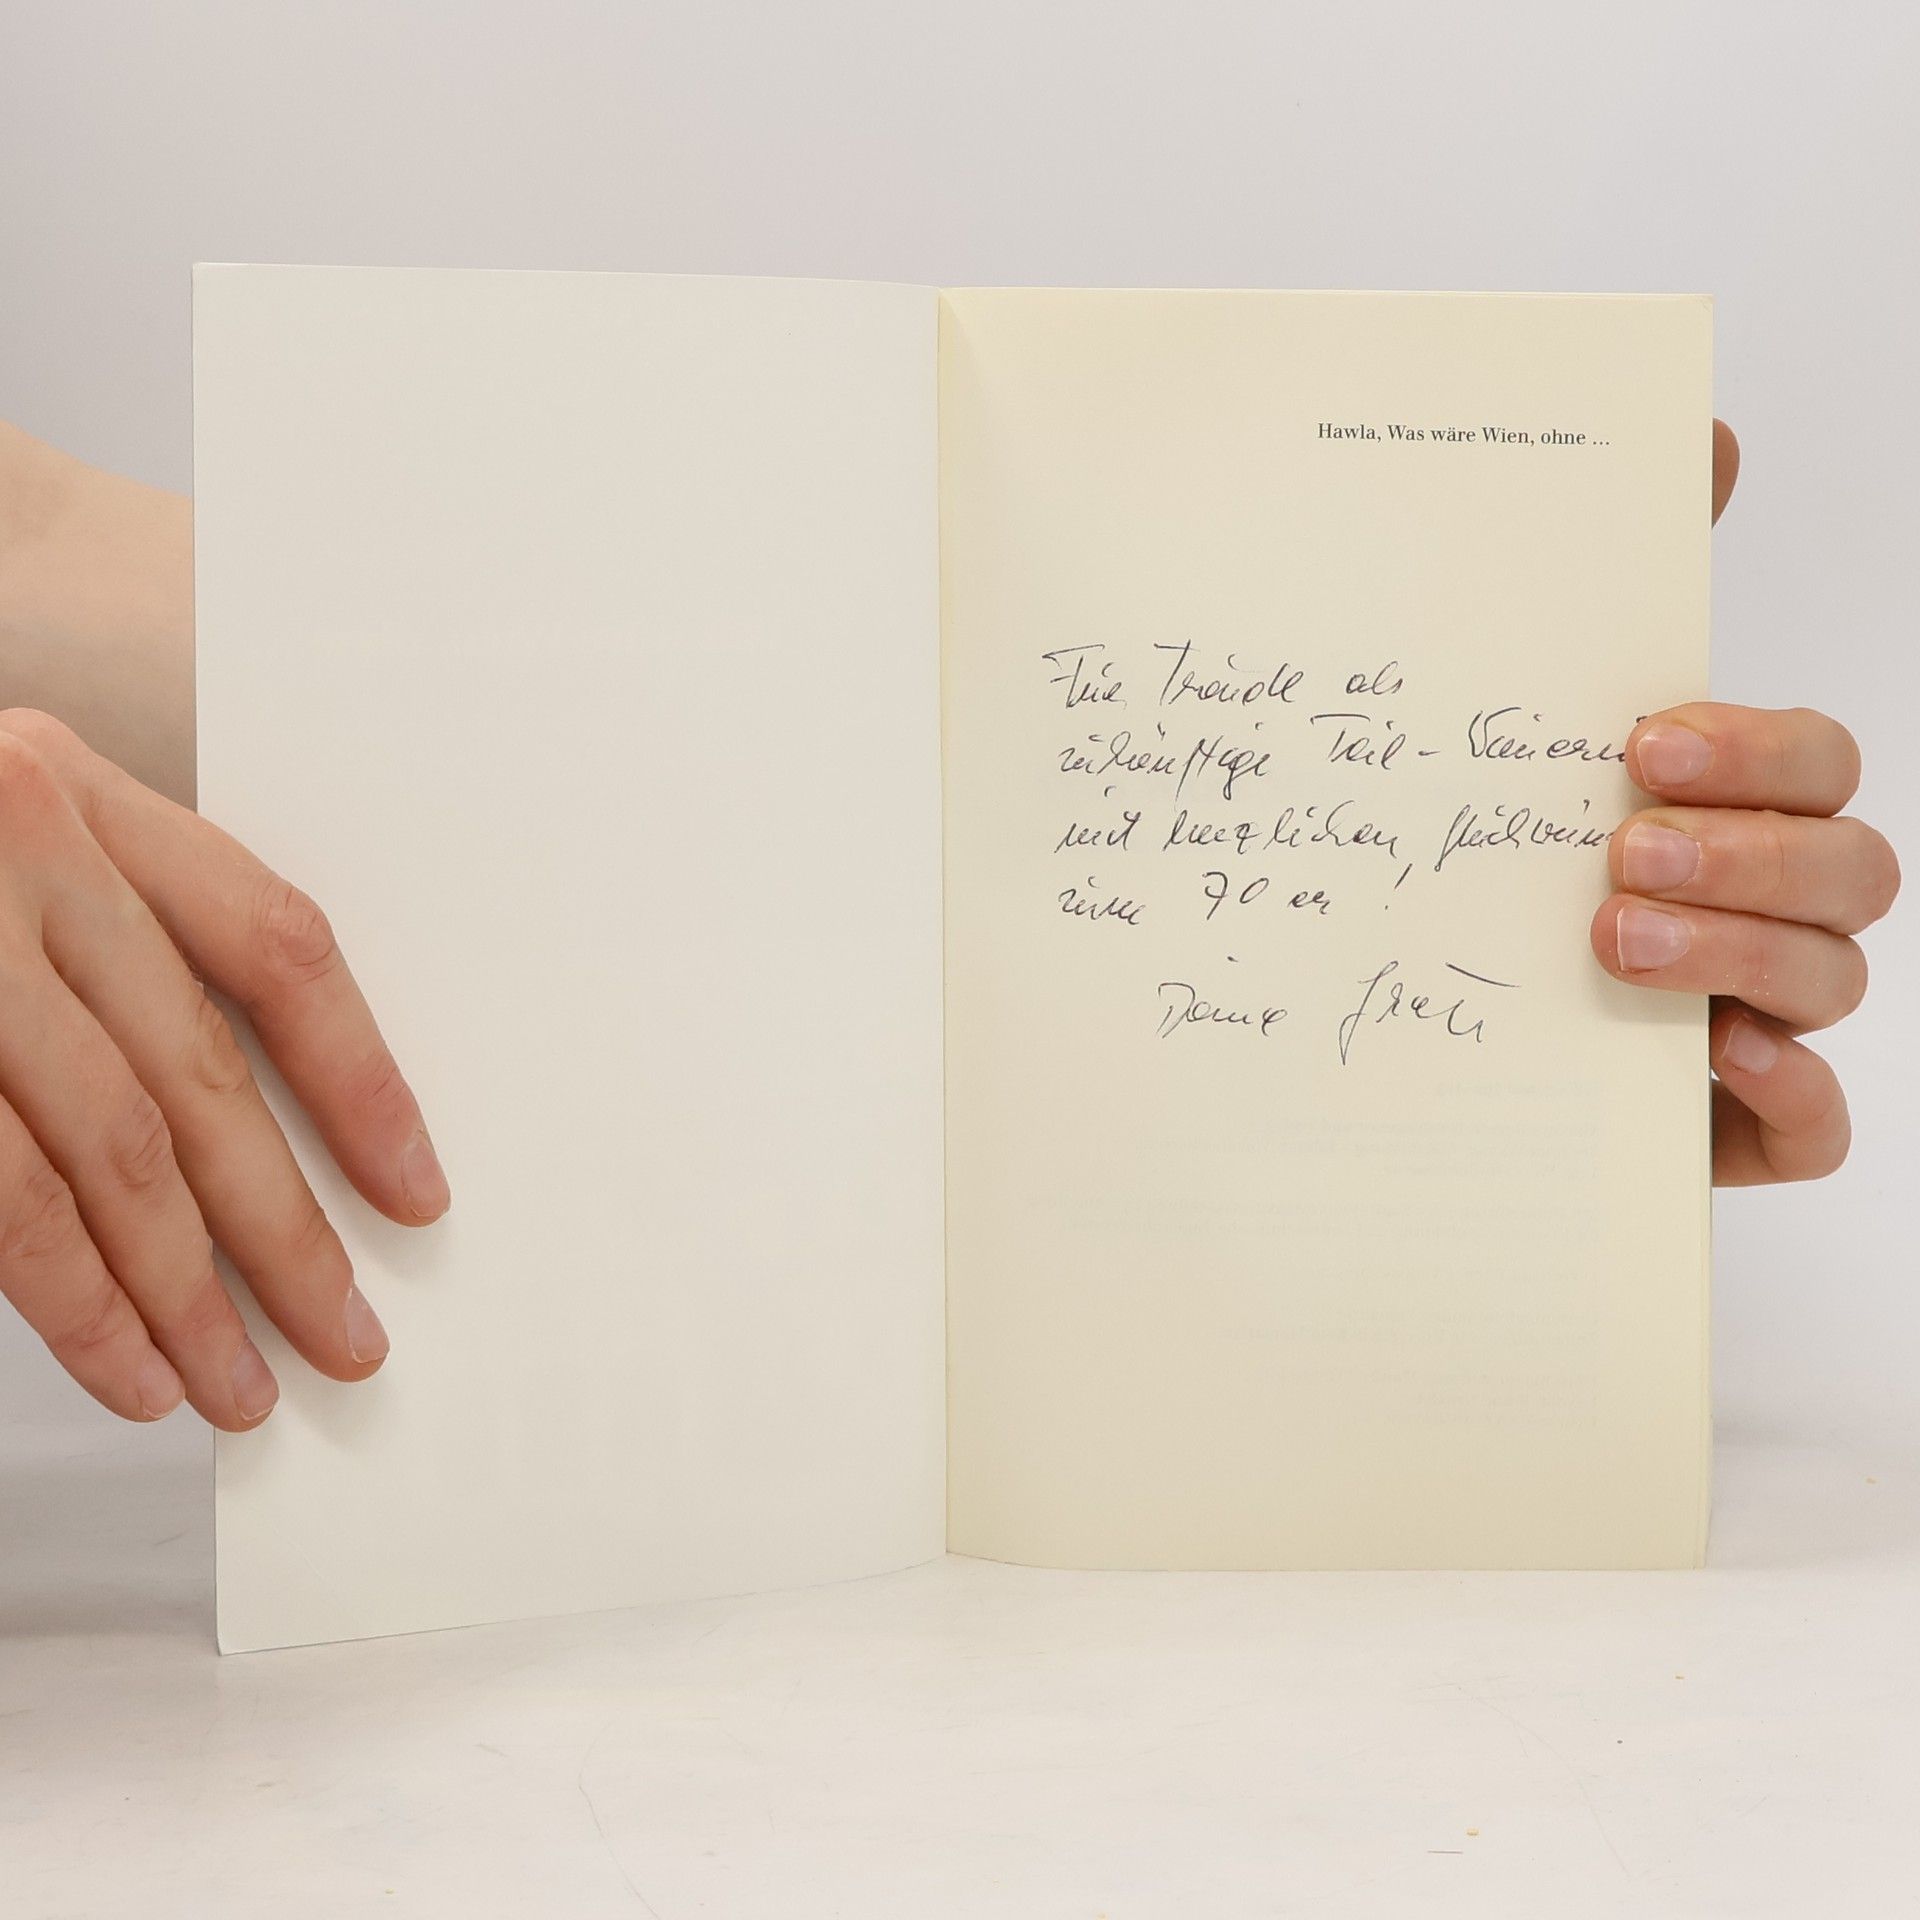 Hawla, Was wäre Wien, ohne ...
Für Traude als
zukünftige Teil-Wienerin
mit herzlichen Glückwün
zum 70er!
Deine